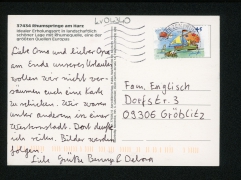 37434 Rhumspringe am Harz
Idealer Erholungsort in landschaftlich
schöner Lage mit Rhumequelle, eine der
größten Quellen Europas
Liebe Oma und lieber Opa
am Ende unseres Urlaubs
wollen wir nicht ver-
säumen euch eine Karte
zu schicken. Wir waren
unter anderem in einer
Westernstadt. Dort durfte
ich reiten. Bilder werden
folgen.
Liebe Grüße Benny & Debora
Fam. Englisch
Dorfstr. 3
09306 Gröblitz